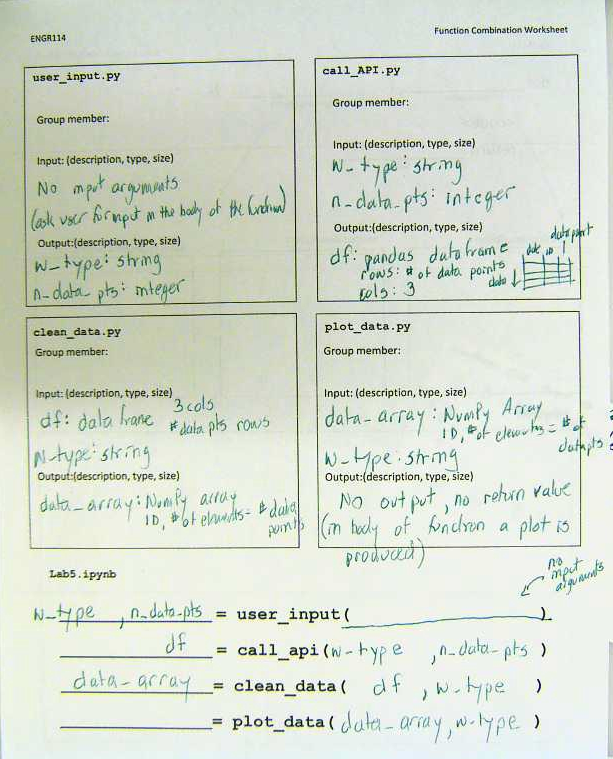 ENGR114
Function Combination Worksheet
user_input.py
Group member:
Input: (description, type, size)
No input arguments
(ask user for input in the body of the function)
Output:(description, type, size)
w_type: string
n_data_pts: integer
call_API.py
Group member:
Input: (description, type, size)
w_type: string
n_data_pts: integer
Output:(description, type, size)
df: pandas dataframe
rows: # of data points
cols: 3
date ID data point
data ↓
clean_data.py
Group member:
Input: (description, type, size)
df: data frame 3 cols
# data pts rows
w-type: string
Output:(description, type, size)
data_array: NumPy array
1D, # of elements = # data
points
plot_data.py
Group member:
Input: (description, type, size)
data_array: NumPy Array
1D, # of elements = # of
data pts
w_type: string
Output:(description, type, size)
No output, no return value
(in body of function a plot is
produced)
Lab5.ipynb
no
input
arguments
w_type, n_data_pts = user_input( )
df = call_api(w-type, n_data_pts )
data_array = clean_data( df, w_type )
= plot_data( data_array, w_type )